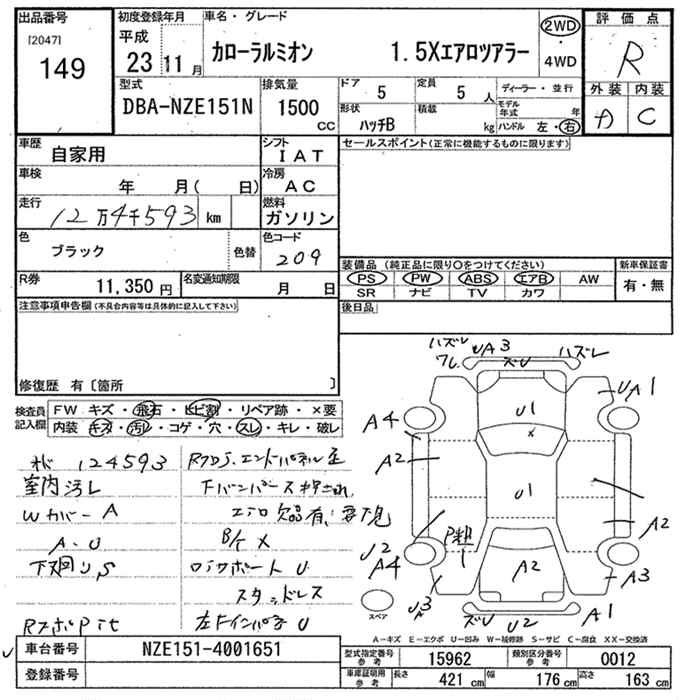 出品番号 初度登録年月 車名・グレード 2WD 評価点
[2047] 平成 カローラルミオン 1.5Xエアロツアラー ・ R
149 23 11月 4WD 外装 内装
型式 排気量 ドア 5 定員 5人 ディーラー・並行 C
DBA-NZE151N 1500cc 形状 ハッチB 積載 kg モデル年式 年 ハンドル 左・右
車歴 自家用 シフト IAT セールスポイント(正常に機能するものに限ります)
車検 年 月( 日) 冷房 AC
走行 12万4千593 km 燃料 ガソリン
色 ブラック 色替 色コード 209
装備品(純正品に限り〇をつけてください) 新車保証書
R券 11,350円 名変通知期限 月 日 PS PW ABS エアB AW 有・無
SR ナビ TV カワ
注意事項申告欄(不具合内容等は具体的に記入して下さい) 後日品
修復歴 有〔箇所 〕
検査員記入欄 FW キズ・飛石・ヒビ割・リペア跡・×要
内装 キズ・汚レ・コゲ・穴・スレ・キレ・破レ
ハズレ UA3 ズU ハズレ
ワレ
UA1
A4 U1
A2 ×
U1
A2
P粗
U2 A4 A2
A3
U3 ズU U2 A1
スペア
124593
室内汚レ
Wカバー A
下バンパー
エアロ欠品有、要下見
A・U B/ケ ×
下廻り S ロッカボート U
スタッドレス
左Fインパネ U
A-キズ E-エクボ U-凹み W-補修跡 S-サビ C-腐食 XX-交換済
車台番号 NZE151-4001651 型式指定番号 参考 15962 類別区分番号 参考 0012
登録番号 車庫証明用 参考 長さ 421cm 幅 176cm 高さ 163cm